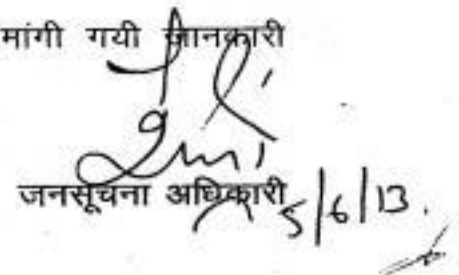 मांगी गयी जानकारी
जनसूचना अधिकारी
5/6/13.